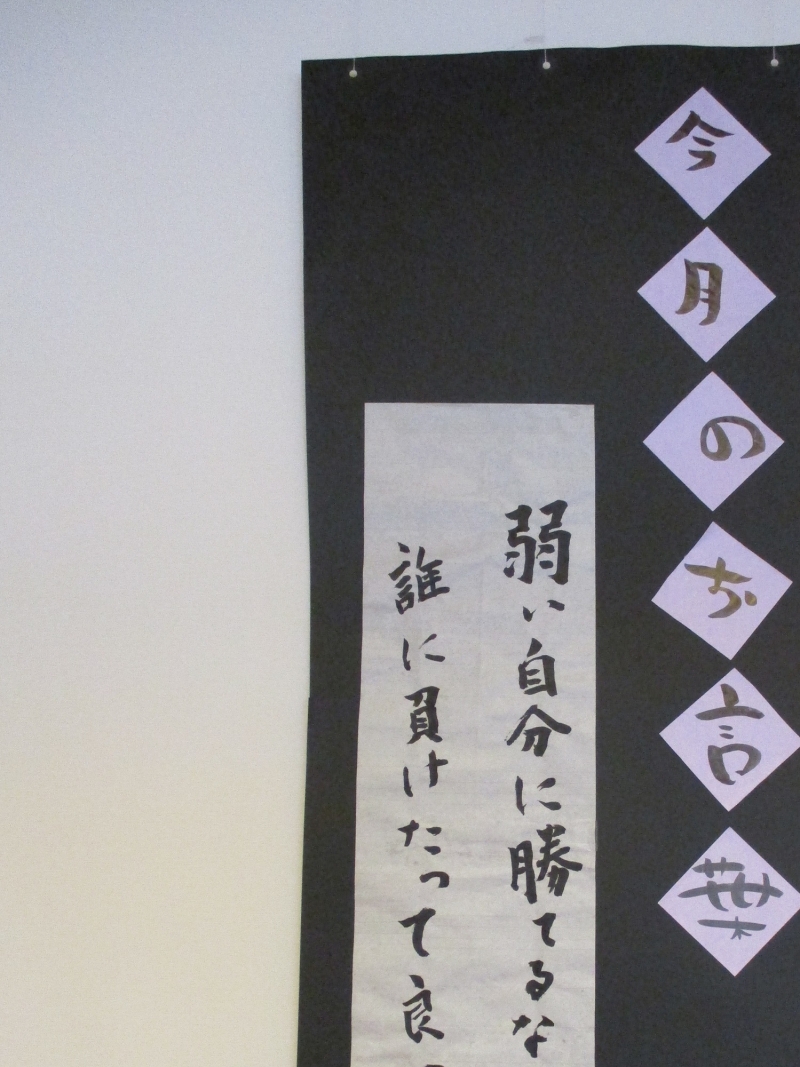 今月のお言葉
弱い自分に勝てるな
誰に負けたって良